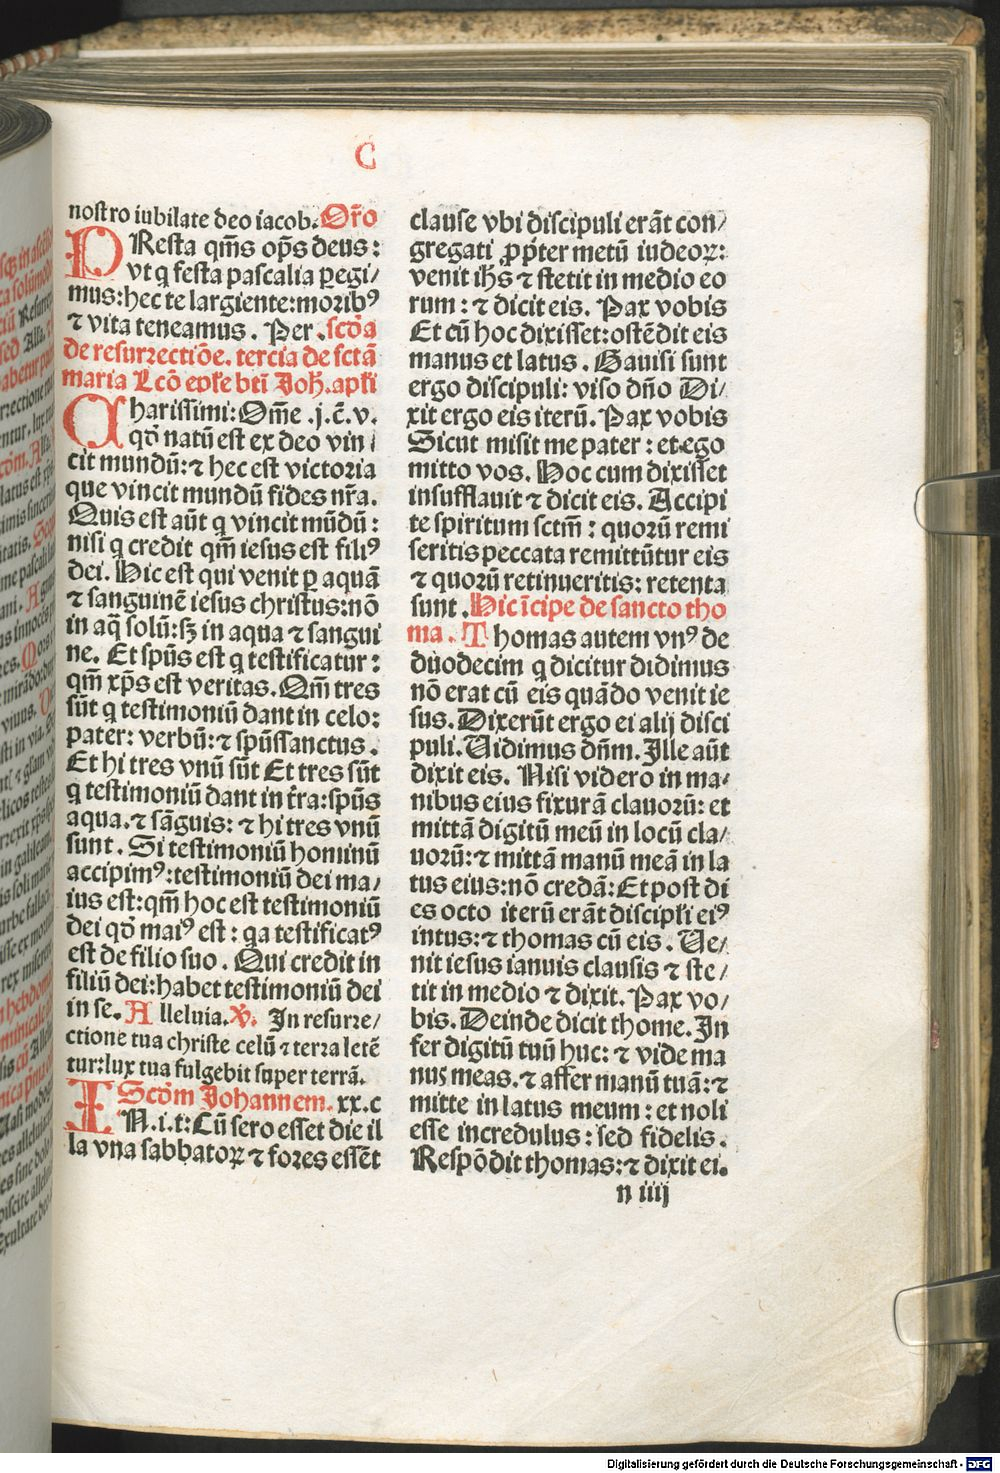 C
nostro iubilate deo iacob. Or̃o
PResta qm̃s op̃s deus:
vt q festa pascalia ꝑegi/
mus: hec te largiente: moribꝰ
⁊ vita teneamus. Per. scd̃a
de resurrectiõe. tercia de sctã
maria Lcõ epłe bti̅ Joh̃. apłi
Charissimi: Om̃e .j.c̃.v.
qd̃ natũ est ex deo vin
cit mundũ: ⁊ hec est victoria
que vincit mundũ fides nr̃a.
Quis est aũt q vincit mũdũ:
nisi q credit qm̃ iesus est filiꝰ
dei. Hic est qui venit ꝑ aquã
⁊ sanguinẽ iesus christus: nõ
in aq̃ solũ: sꝫ in aqua ⁊ sangui
ne. Et sp̃us est q testificatur:
qm̃ xp̃s est veritas. Qm̃ tres
sũt q testimoniũ dant in celo:
pater: verbũ: ⁊ sp̃ussanctus.
Et hi tres vnũ sũt Et tres sũt
q testimoniũ dant in t̃ra: sp̃us
aqua. ⁊ sãguis: ⁊ hi tres vnũ
sunt. Si testimoniũ hominũ
accipimꝰ: testimoniũ dei ma/
ius est: qm̃ hoc est testimoniũ
dei qd̃ maiꝰ est: qa testificatꝰ
est de filio suo. Qui credit in
filiũ dei: habet testimoniũ dei
in se. Alleluia. ℣. In resurre/
ctione tua christe celũ ⁊ terra letẽ
tur: lux tua fulgebit super terrã.
Scd̃m Johannem. xx.c
IN.i.t: Cũ sero esset die il
la vna sabbatoꝝ ⁊ fores essẽt
clause vbi discipuli erãt con/
gregati ꝓpter metũ iudeoꝝ:
venit ih̃s ⁊ stetit in medio eo
rum: ⁊ dicit eis. Pax vobis
Et cũ hoc dixisset: ostẽdit eis
manus et latus. Gauisi sunt
ergo discipuli: viso dño Di/
xit ergo eis iterũ. Pax vobis
Sicut misit me pater: et ego
mitto vos. Hoc cum dixisset
insufflauit ⁊ dicit eis. Accipi
te spiritum sctm̃: quorũ remi
seritis peccata remittũtur eis
⁊ quorũ retinueritis: retenta
sunt. Hic ĩcipe de sancto tho
ma. Thomas autem vnꝰ de
duodecim q dicitur didimus
nõ erat cũ eis quãdo venit ie
sus. Dixerũt ergo ei alij disci
puli. Uidimus dñm. Ille aũt
dixit eis. Nisi videro in ma/
nibus eius fixurã clauorũ: et
mittã digitũ meũ in locũ cla/
uorũ: ⁊ mittã manũ meã in la
tus eius: nõ credã: Et post di
es octo iterũ erãt discipłi eiꝰ
intus: ⁊ thomas cũ eis. Ue/
nit iesus ianuis clausis ⁊ ste/
tit in medio ⁊ dixit. Pax vo/
bis. Deinde dicit thome. In
fer digitũ tuũ huc: ⁊ vide ma
nus meas. ⁊ affer manũ tuã: ⁊
mitte in latus meum: et noli
esse incredulus: sed fidelis.
Respõdit thomas: ⁊ dixit ei.
n iiij
Digitalisierung gefördert durch die Deutsche Forschungsgemeinschaft - DFG